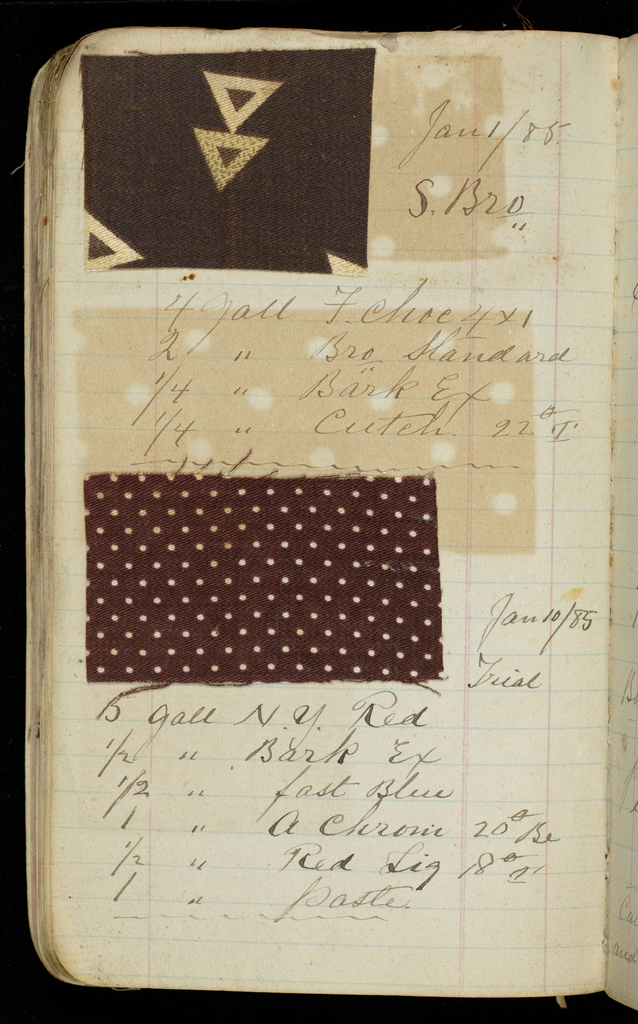 Jan 1/85
S. Bro
"
4 Gall F. Choc 4x1
2 " Bro Standard
1/4 " Bark Ex
1/4 " Cutch 22° T
Jan 10/85
Trial
5 Gall N.Y. Red
1/2 " Bark Ex
1/2 " fast Blue
1 " A Chrom 20° Be
1/2 " Red Liq 18° T
1 " paste.